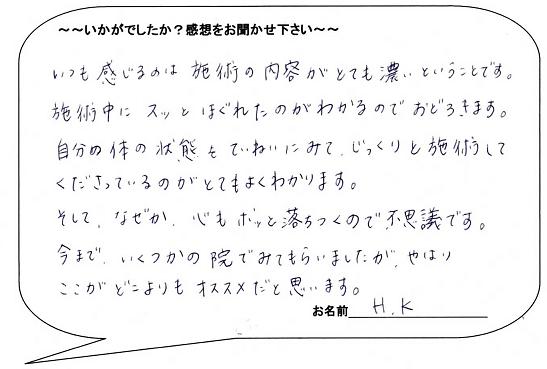 ～～いかがでしたか？感想をお聞かせ下さい～～
いつも感じるのは施術の内容がとても濃いということです。
施術中にスッとほぐれたのがわかるのでおどろきます。
自分の体の状態をていねいにみて、じっくりと施術して
くださっているのがとてもよくわかります。
そして、なぜか、心もホッと落ちつくので不思議です。
今まで、いくつかの院でみてもらいましたが、やはり
ここがどこよりもオススメだと思います。
お名前 H.K